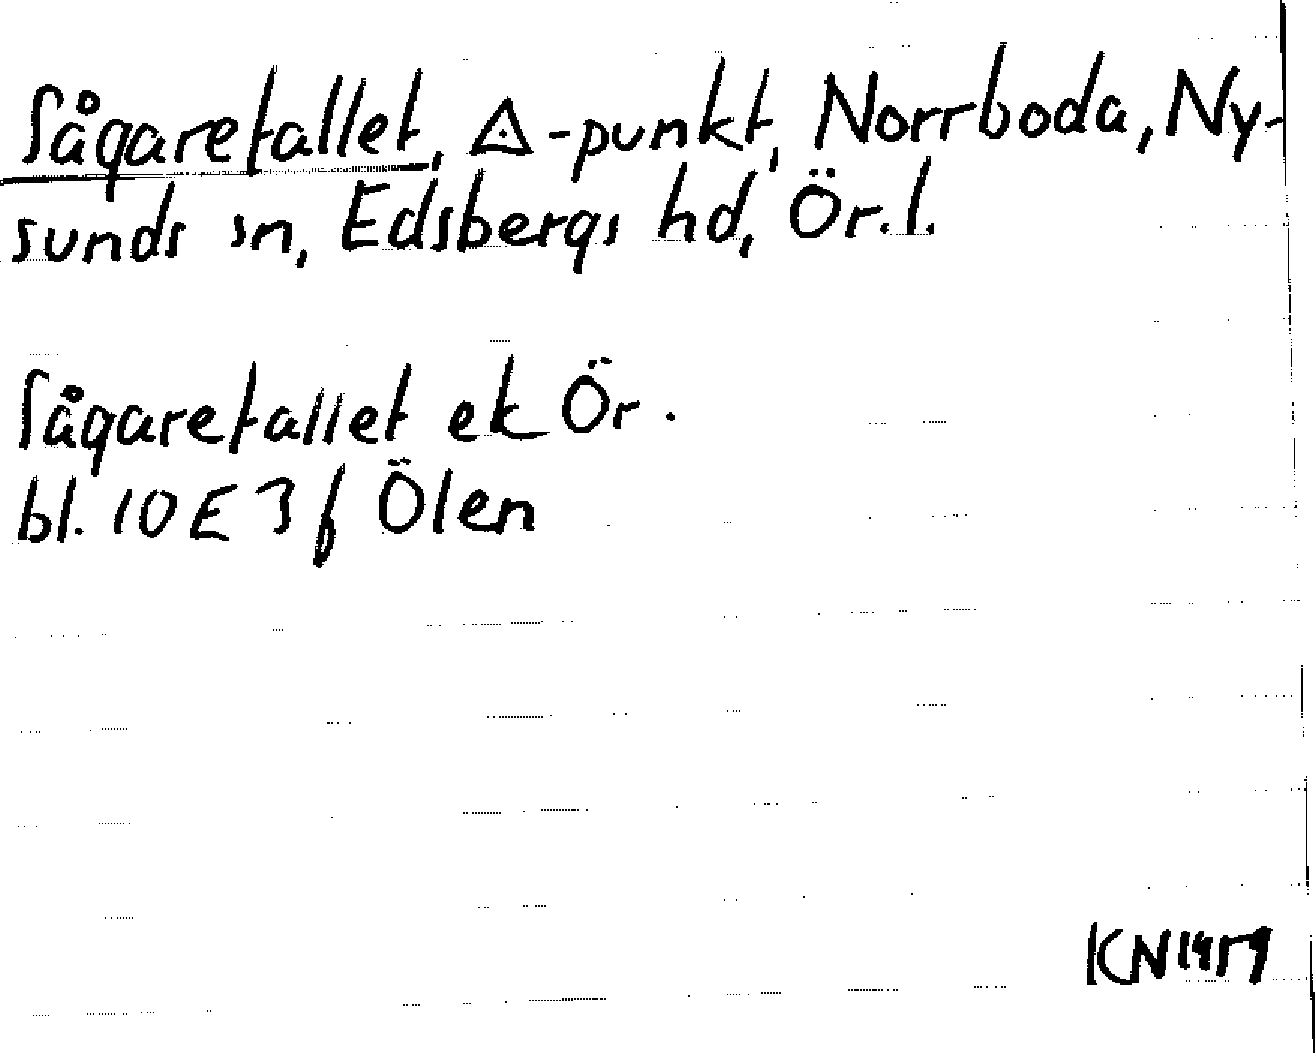 Sågaretallet, △-punkt, Norrboda, Ny-
sunds sn, Edsbergs hd, Ör.l.
Sågaretallet ek Ör.
bl. 10E 3f Ölen
KN 1959